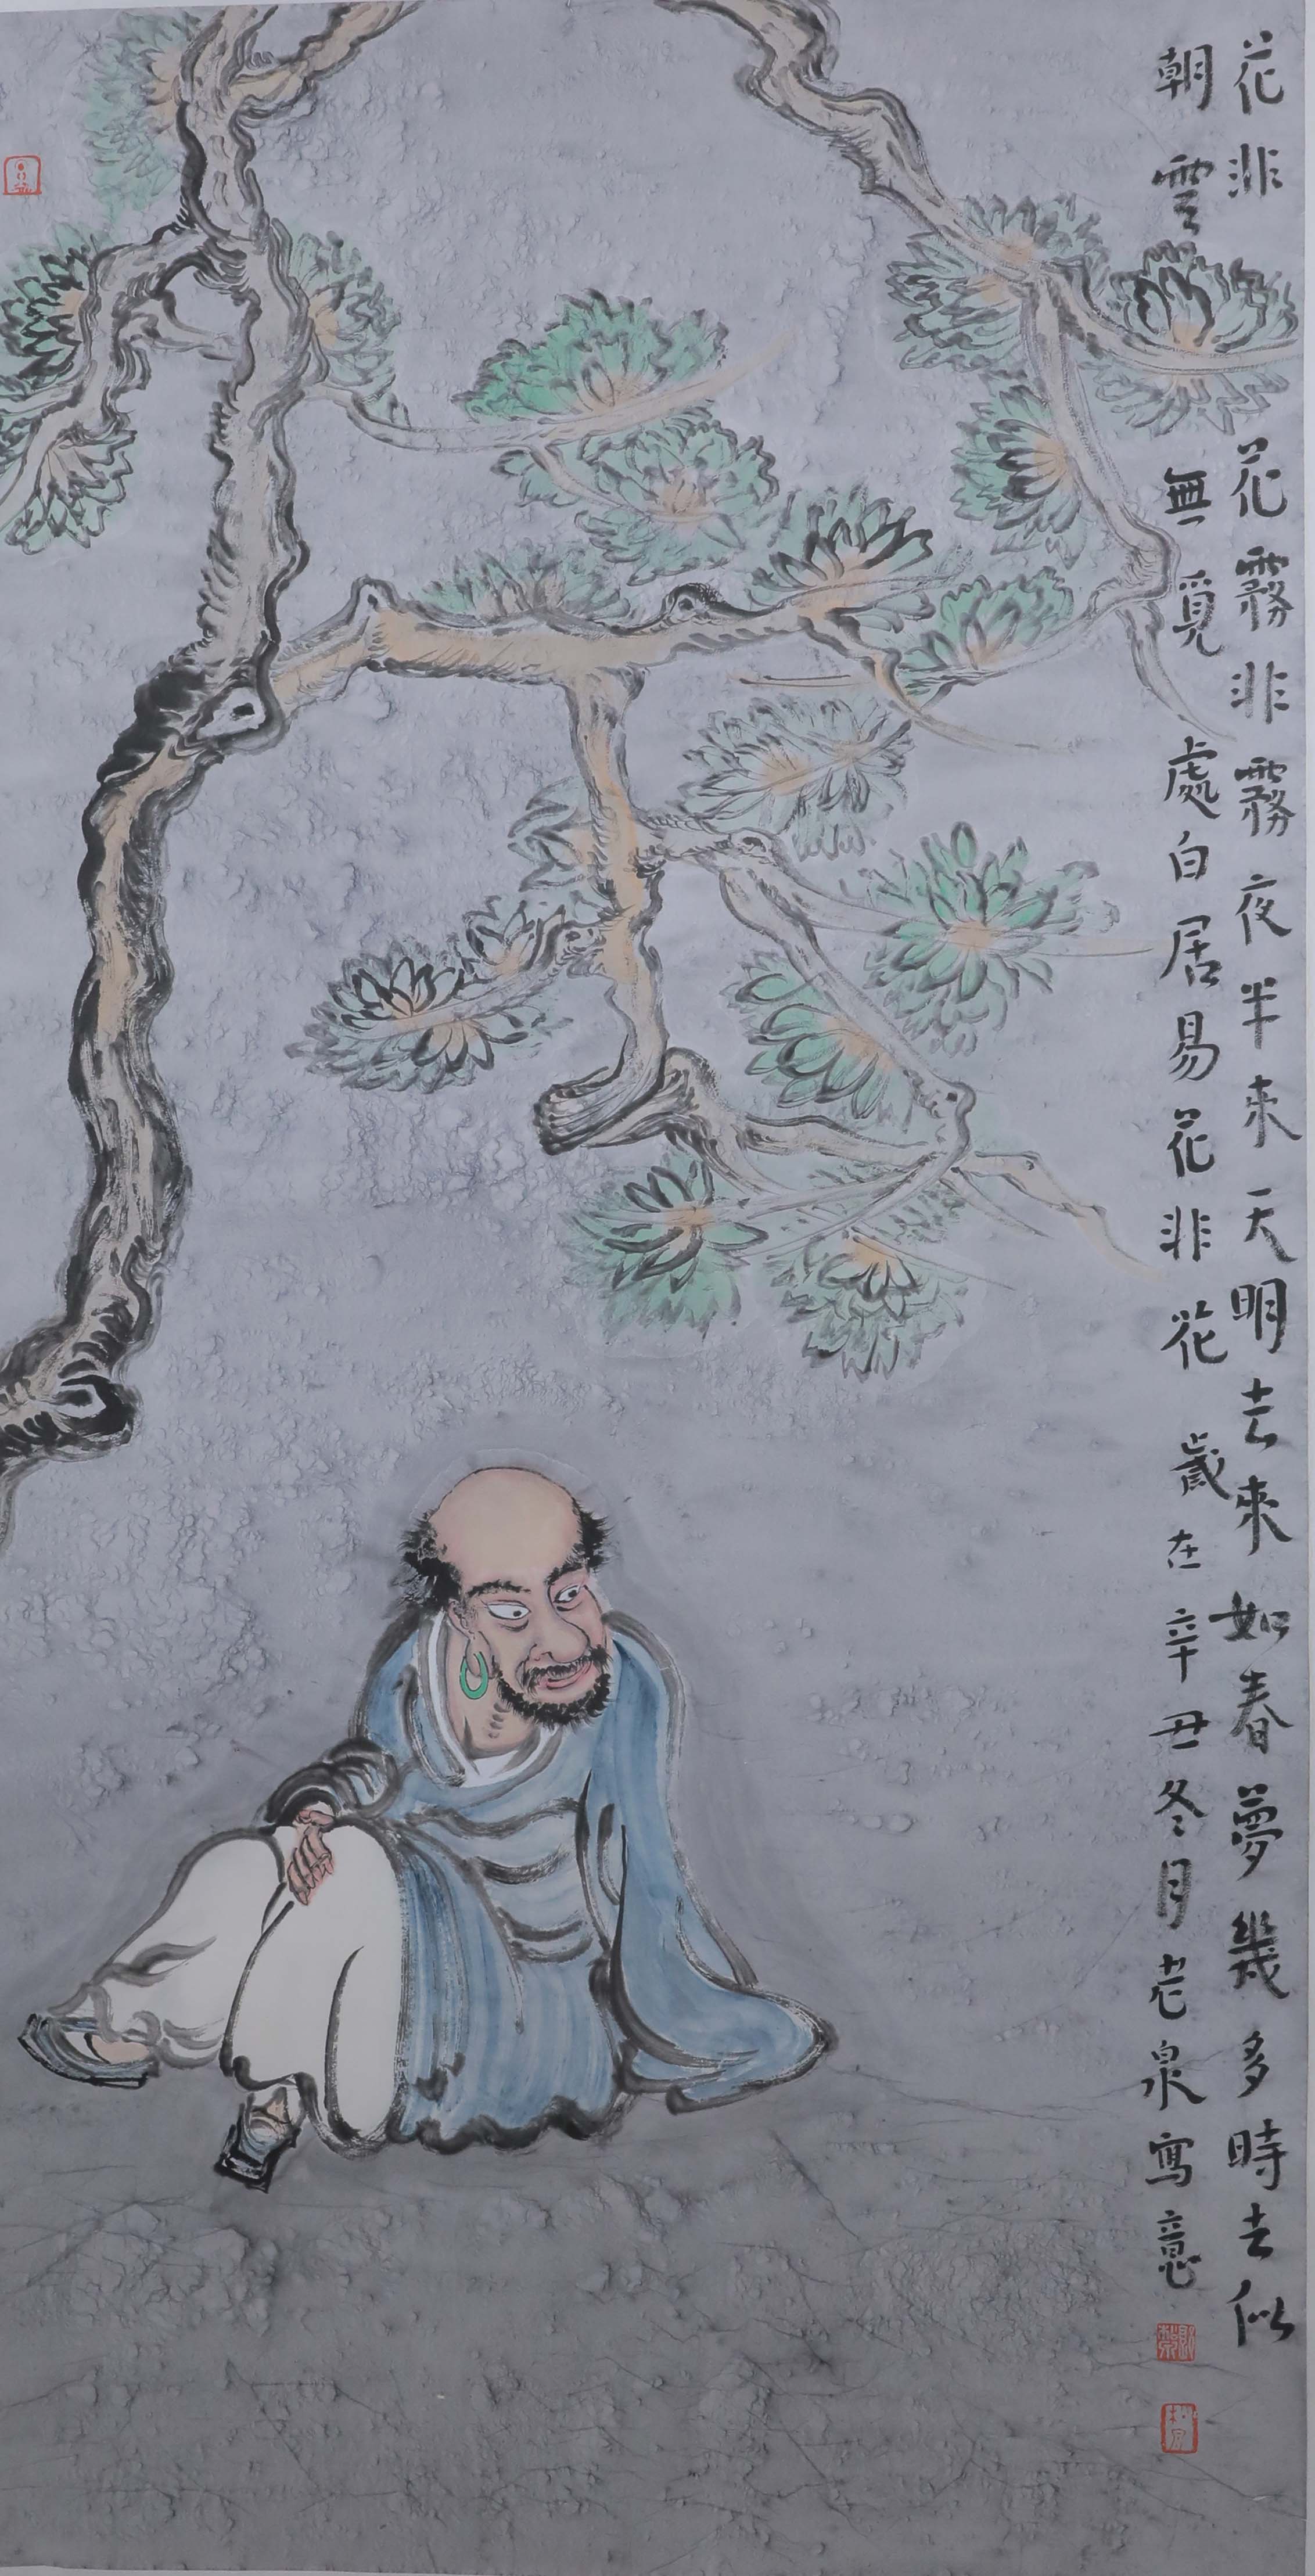 花非花霧非霧夜半来天明去來如春夢幾多時去似
朝雲無覓處白居易花非花歲在辛丑冬月老泉寫意